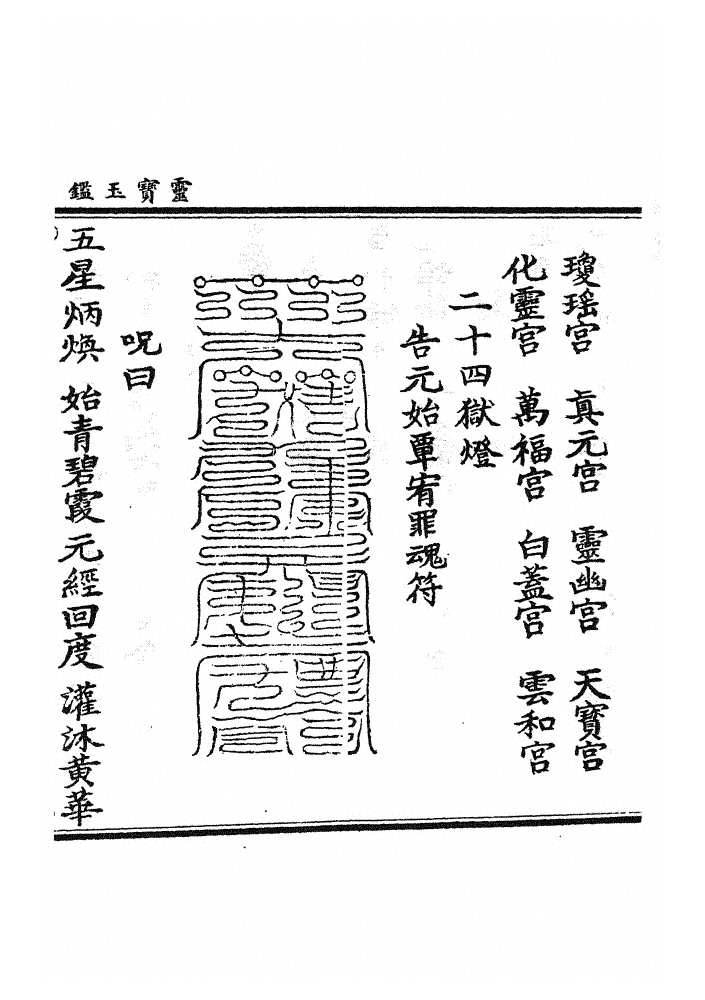 靈寶玉鑑
瓊瑶宫 真元宫 靈幽宫 天寶宫
化靈宫 萬福宫 白蓋宫 雲和宫
二十四獄燈
告元始覃宥罪魂符
呪曰
五星炳煥 始青碧霞 元經回度 灌沐黃華